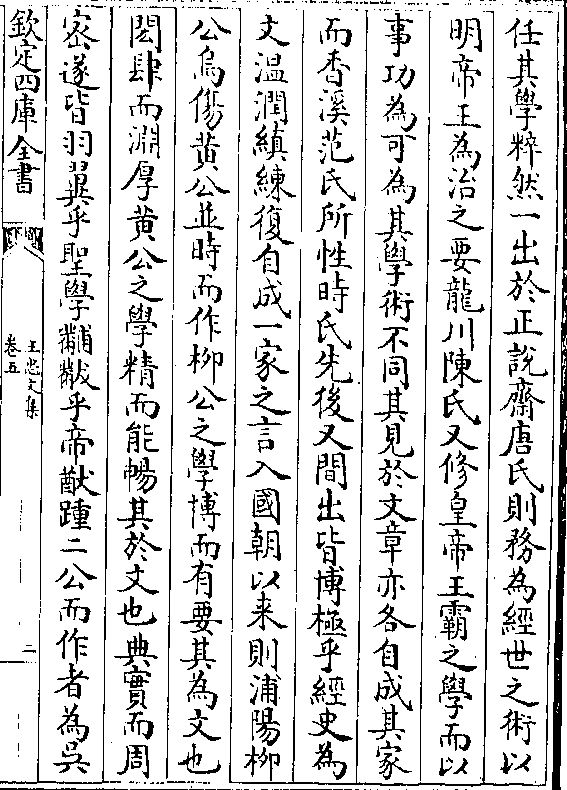 任其學粹然一出於正說齋唐氏則務為經世之術以
明帝王為治之要龍川陳氏又修皇帝王霸之學而以
事功為可為其學術不同其見於文章亦各自成其家
而香溪范氏所性時氏先後又間出皆博極乎經史為
文温潤縝練復自成一家之言入國朝以来則浦陽柳
公烏傷黄公並時而作柳公之學博而有要其為文也
閎肆而淵厚黄公之學精而能暢其於文也典實而周
宻遂皆羽翼乎聖學黼黻乎帝猷踵二公而作者為吳
欽定四庫全書
王忠文集
卷五
二